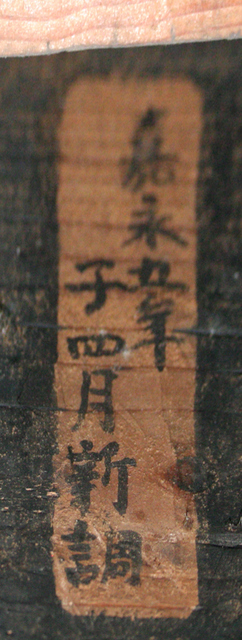 嘉永五年
子四月新調